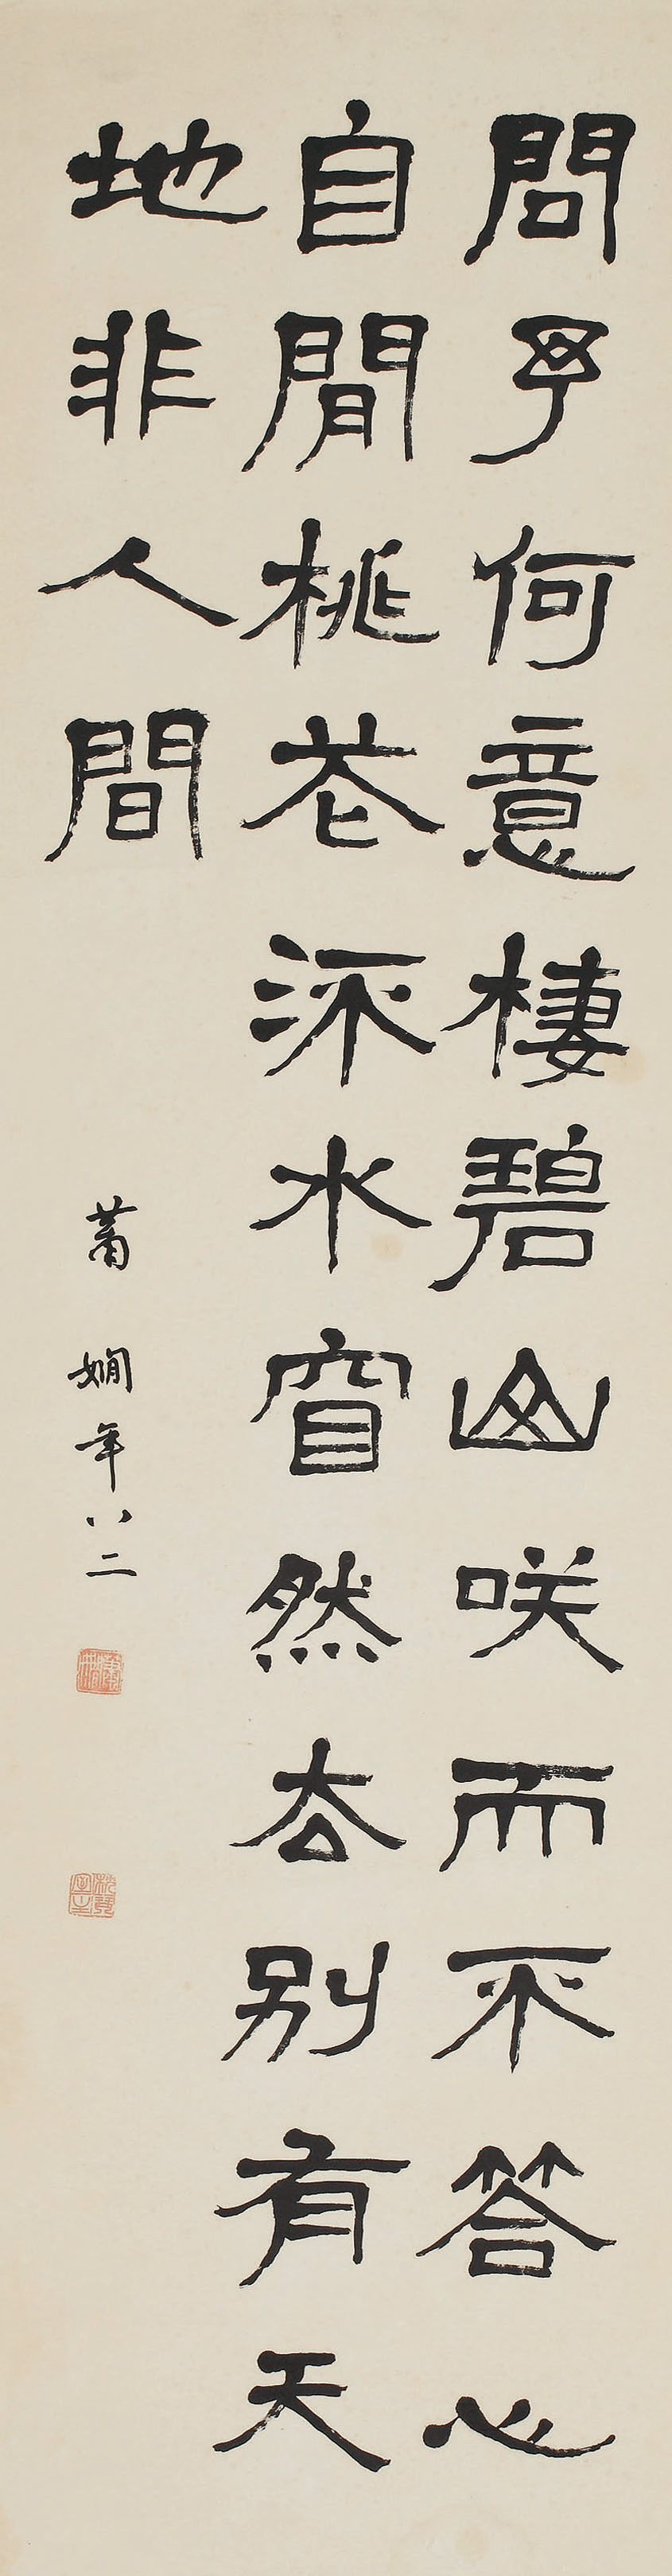 問予何意棲碧山咲而不答心
自閒桃花流水窅然去別有天
地非人間
蕭嫻年八二
蕭嫻
枕琴室主